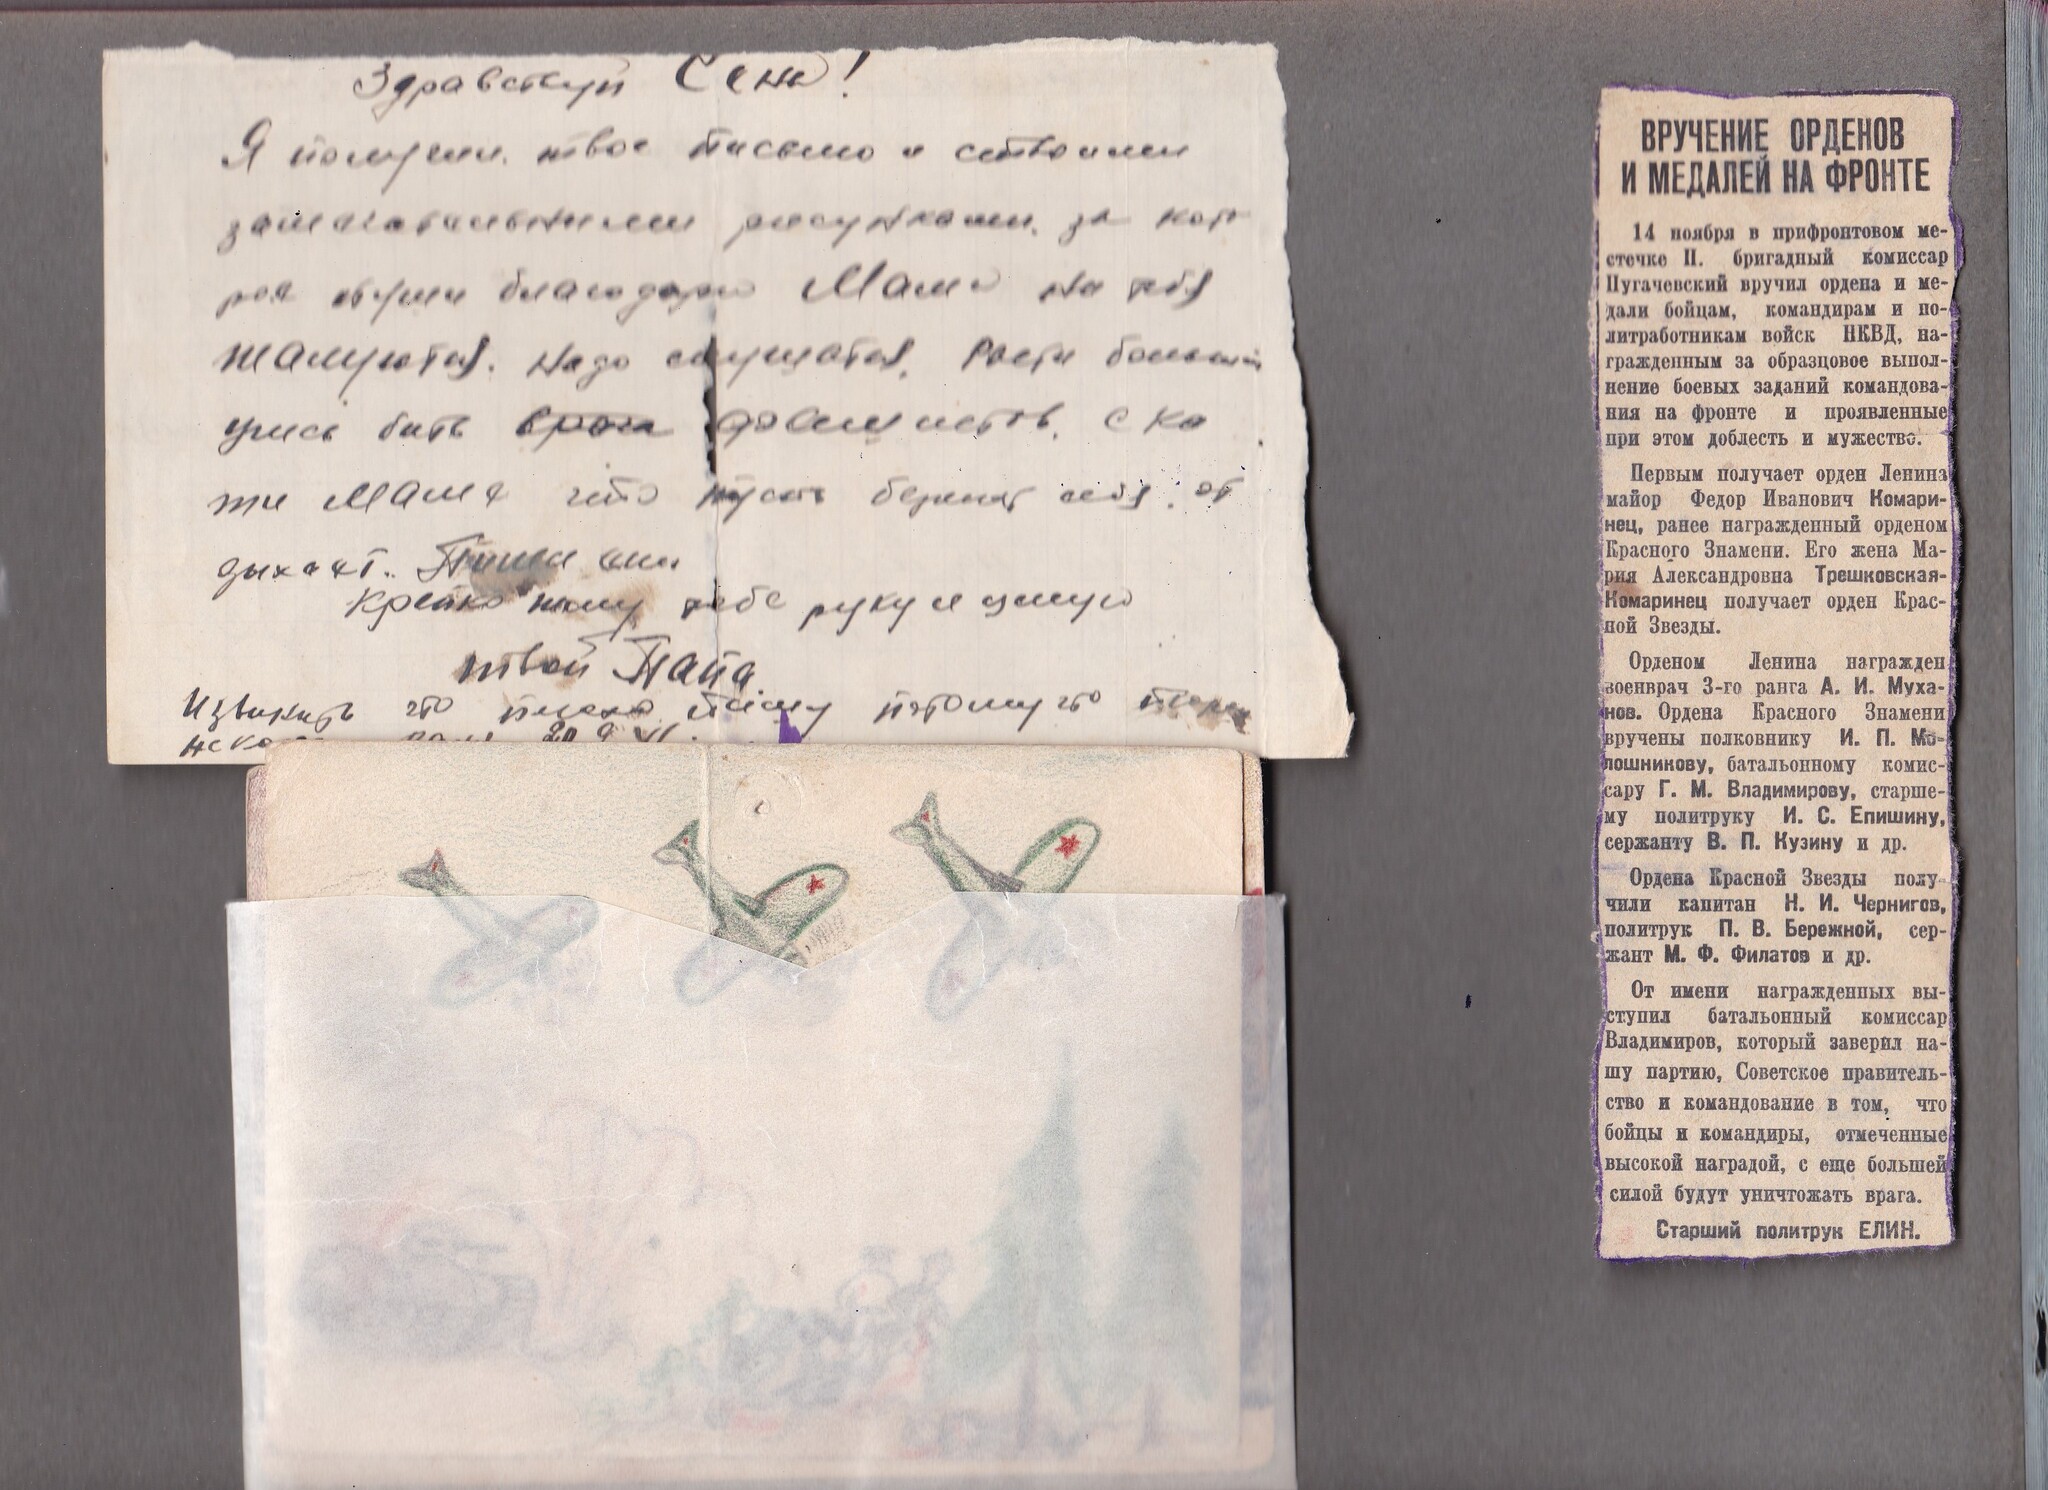 Здравствуй Сеня!
Я получил твое письмо и с твоими
замечательными рисунками, за кото
рое очень благодарю Мама на тебя
жалуются. Надо слушатся, Расти большим
учись бить врага фашистов, ска
жи Маме что пусть бережет себя, от
дыхает. Пиши
Крепко жму тебе руку и целую
твой Папа
Извинить что плохо пишу потому что
ВРУЧЕНИЕ ОРДЕНОВ
И МЕДАЛЕЙ НА ФРОНТЕ
14 ноября в прифронтовом ме-
стечке П. бригадный комиссар
Пугачевский вручил ордена и ме-
дали бойцам, командирам и по-
литработникам войск НКВД, на-
гражденным за образцовое выпол-
нение боевых заданий командова-
ния на фронте и проявленные
при этом доблесть и мужество.
Первым получает орден Ленина
майор Федор Иванович Комари-
нец, ранее награжденный орденом
Красного Знамени. Его жена Ма-
рия Александровна Трешковская-
Комаринец получает орден Крас-
ной Звезды.
Орденом Ленина награжден
военврач 3-го ранга А. И. Муха-
нов. Ордена Красного Знамени
вручены полковнику И. П. Мо-
лошникову, батальонному комис-
сару Г. М. Владимирову, старше-
му политруку И. С. Епишину,
сержанту В. П. Кузину и др.
Ордена Красной Звезды полу-
чили капитан Н. И. Чернигов,
политрук П. В. Бережной, сер-
жант М. Ф. Филатов и др.
От имени награжденных вы-
ступил батальонный комиссар
Владимиров, который заверил на-
шу партию, Советское правитель-
ство и командование в том, что
бойцы и командиры, отмеченные
высокой наградой, с еще большей
силой будут уничтожать врага.
Старший политрук ЕЛИН.